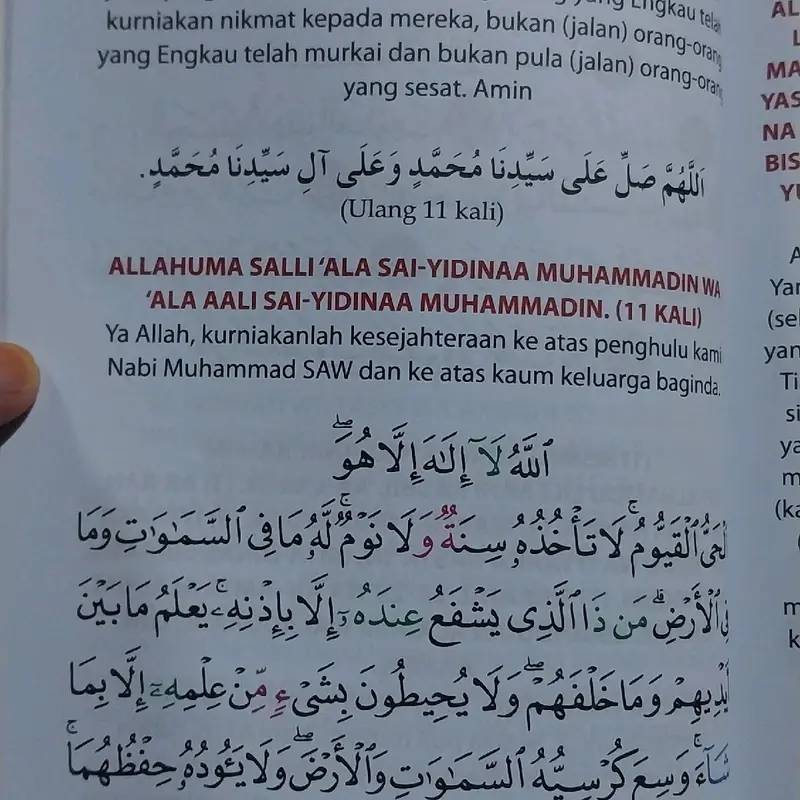 yang Engkau telah
kurniakan nikmat kepada mereka, bukan (jalan) orang-orang
yang Engkau telah murkai dan bukan pula (jalan) orang-orang
yang sesat. Amin
اَللّٰهُمَّ صَلِّ عَلَى سَيِّدِنَا مُحَمَّدٍ وَعَلَى آلِ سَيِّدِنَا مُحَمَّدٍ.
(Ulang 11 kali)
ALLAHUMA SALLI ‘ALA SAI-YIDINAA MUHAMMADIN WA
‘ALA AALI SAI-YIDINAA MUHAMMADIN. (11 KALI)
Ya Allah, kurniakanlah kesejahteraan ke atas penghulu kami
Nabi Muhammad SAW dan ke atas kaum keluarga baginda.
ٱللَّهُ لَآ إِلَـٰهَ إِلَّا هُوَۖ
لْحَىُّ ٱلْقَيُّومُۚ لَا تَأْخُذُهُۥ سِنَةٌ وَلَا نَوْمٌۚ لَّهُۥ مَا فِى ٱلسَّمَـٰوَٰتِ وَمَا
فِى ٱلْأَرْضِۗ مَن ذَا ٱلَّذِى يَشْفَعُ عِندَهُۥٓ إِلَّا بِإِذْنِهِۦۚ يَعْلَمُ مَا بَيْنَ
يْدِيهِمْ وَمَا خَلْفَهُمْۖ وَلَا يُحِيطُونَ بِشَىْءٍ مِّنْ عِلْمِهِۦٓ إِلَّا بِمَا
شَآءَۚ وَسِعَ كُرْسِيُّهُ ٱلسَّمَـٰوَٰتِ وَٱلْأَرْضَۖ وَلَا يَـُٔودُهُۥ حِفْظُهُمَاۚ
AL
L
MA
YAS
NA
BIS
YU
A
Yan
(sel
yan
Ti
si
ya
m
(ka
(
m
k